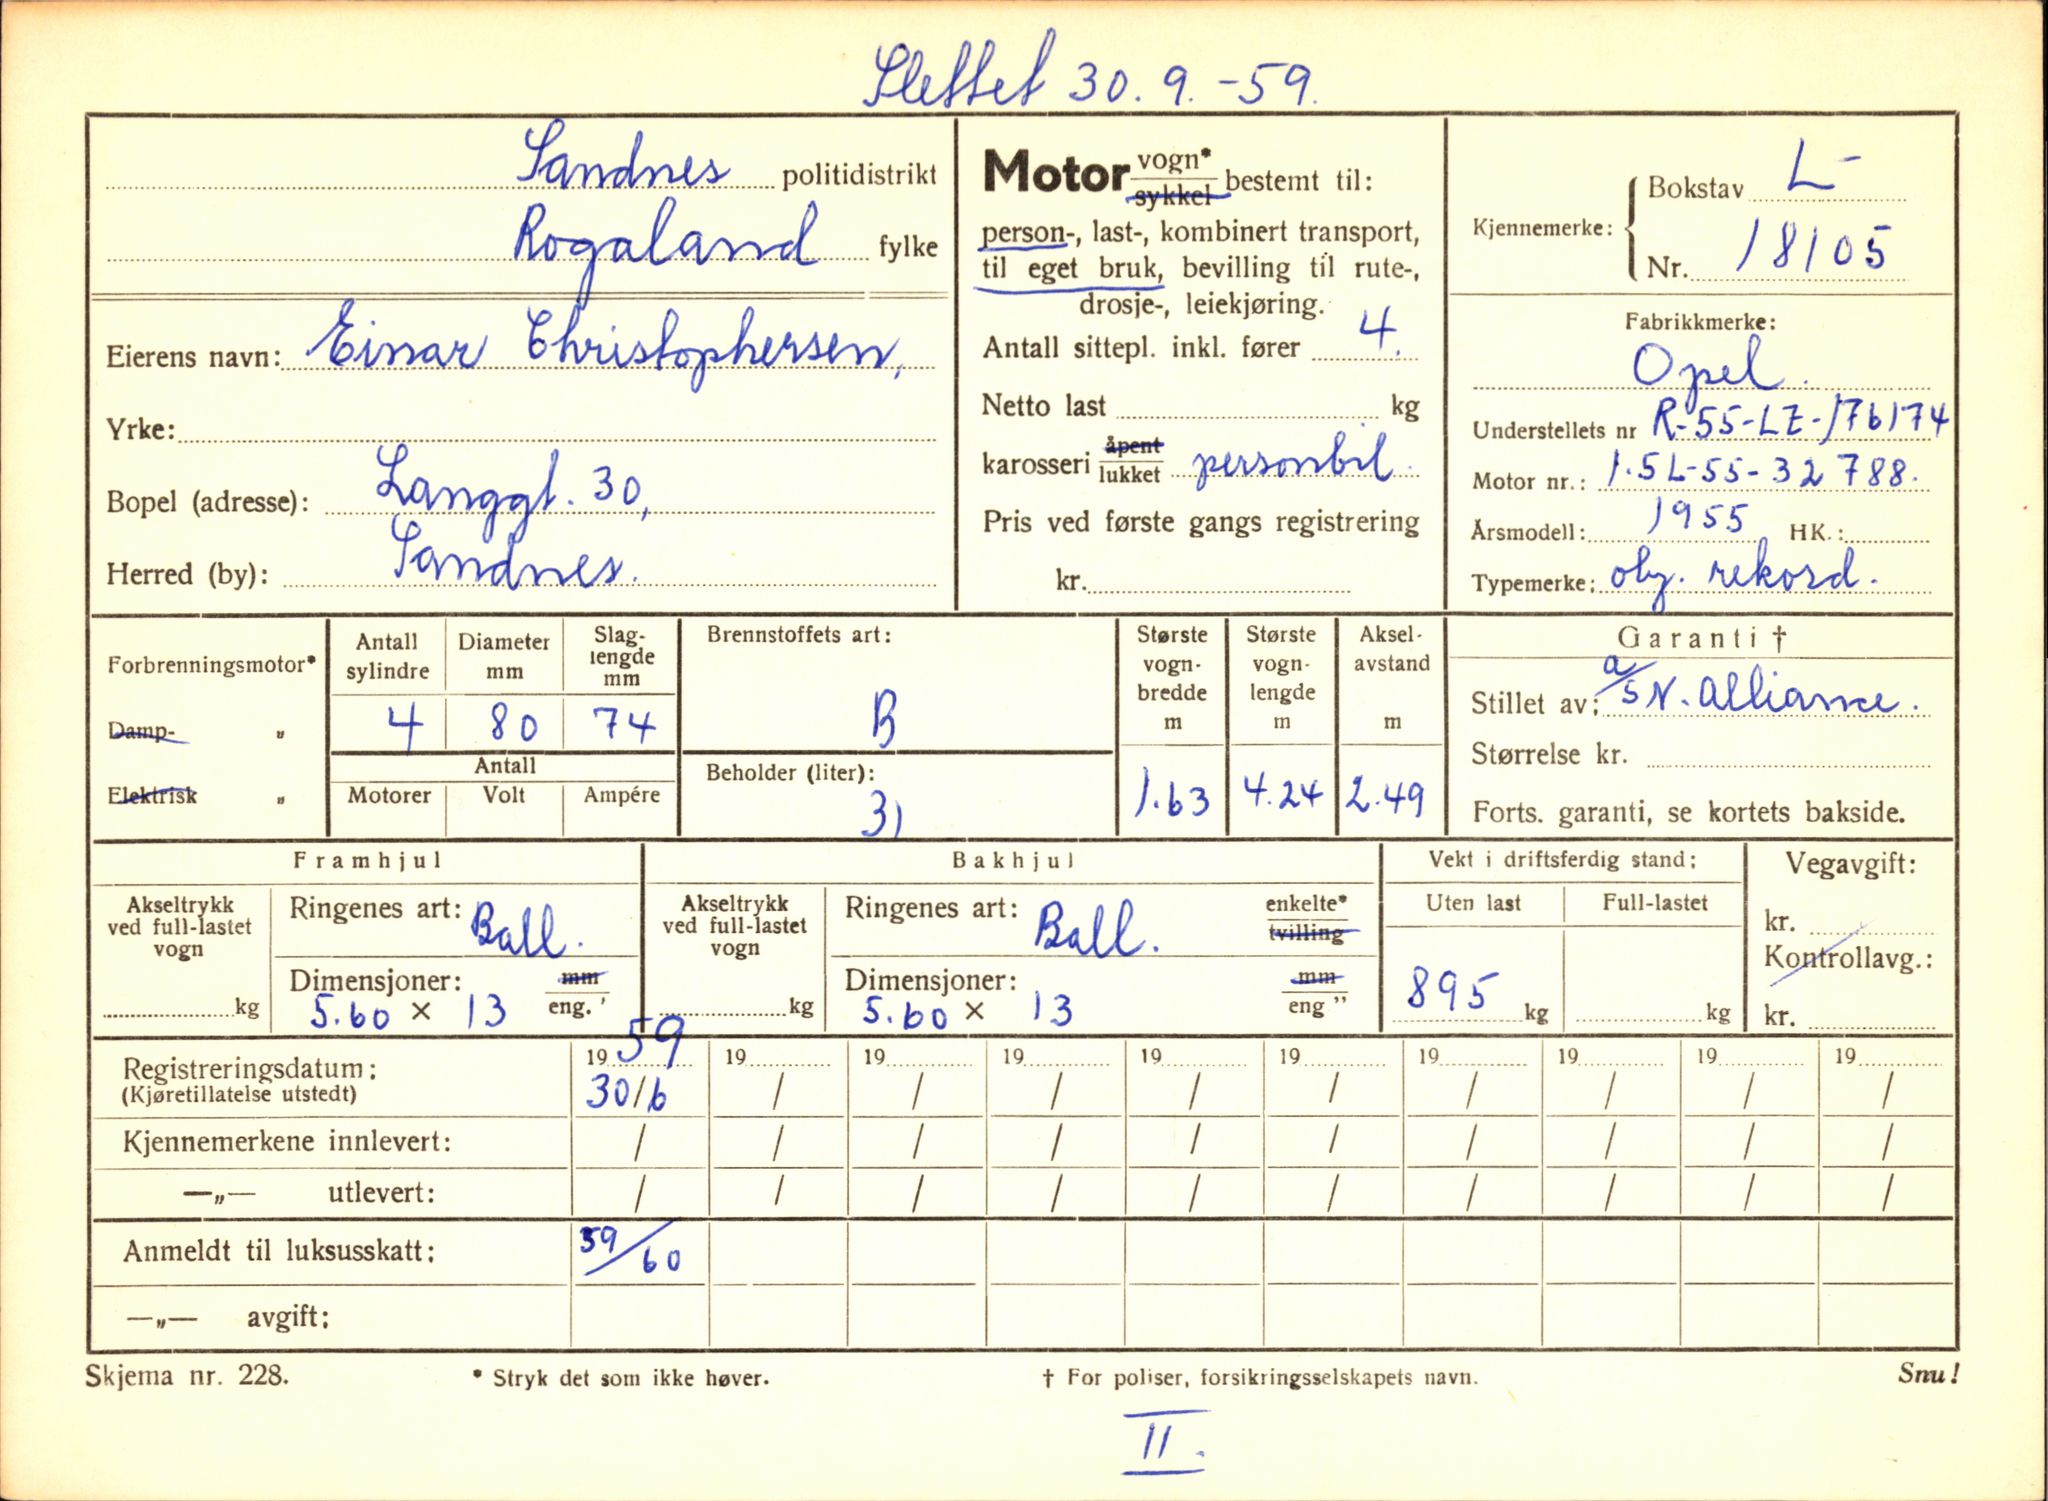 Slettet 30.9.-59.
Sandnes politidistrikt
Rogaland fylke
Eierens navn: Einar Christophersen,
Yrke:
Bopel (adresse): Langgt. 30,
Herred (by): Sandnes.
Motor vogn* sykkel bestemt til:
person-, last-, kombinert transport,
til eget bruk, bevilling til rute-,
drosje-, leiekjøring.
Antall sittepl. inkl. fører 4.
Netto last kg
karosseri åpent lukket personbil.
Pris ved første gangs registrering
kr.
Kjennemerke: Bokstav L-
Nr. 18105
Fabrikkmerke:
Opel.
Understellets nr R-55-LZ-176174
Motor nr.: 1.5L-55-32788.
Årsmodell: 1955 HK.:
Typemerke: oly. rekord.
Forbrenningsmotor*
Damp- „
Elektrisk „
Antall sylindre
Diameter mm
Slag-lengde mm
4 80 74
Antall
Motorer Volt Ampére
Brennstoffets art:
B
Beholder (liter):
31
Største vogn-bredde m
Største vogn-lengde m
Aksel-avstand m
1.63 4.24 2.49
Garanti †
Stillet av: a/s N. Alliance.
Størrelse kr.
Forts. garanti, se kortets bakside.
Framhjul
Akseltrykk ved full-lastet vogn
kg
Ringenes art: Ball.
Dimensjoner: mm
5.60 × 13 eng.'
Bakhjul
Akseltrykk ved full-lastet vogn
kg
Ringenes art: Ball. enkelte* tvilling
Dimensjoner: mm
5.60 × 13 eng "
Vekt i driftsferdig stand:
Uten last Full-lastet
895 kg kg
Vegavgift:
kr.
Kontrollavg.:
kr.
Registreringsdatum: 1959 19 19 19 19 19 19 19 19 19
(Kjøretillatelse utstedt) 30/6 / / / / / / / / /
Kjennemerkene innlevert: / / / / / / / / / /
—„— utlevert: / / / / / / / / / /
Anmeldt til luksusskatt: 59/60
—„— avgift:
Skjema nr. 228. * Stryk det som ikke høver. † For poliser, forsikringsselskapets navn. Snu!
II.